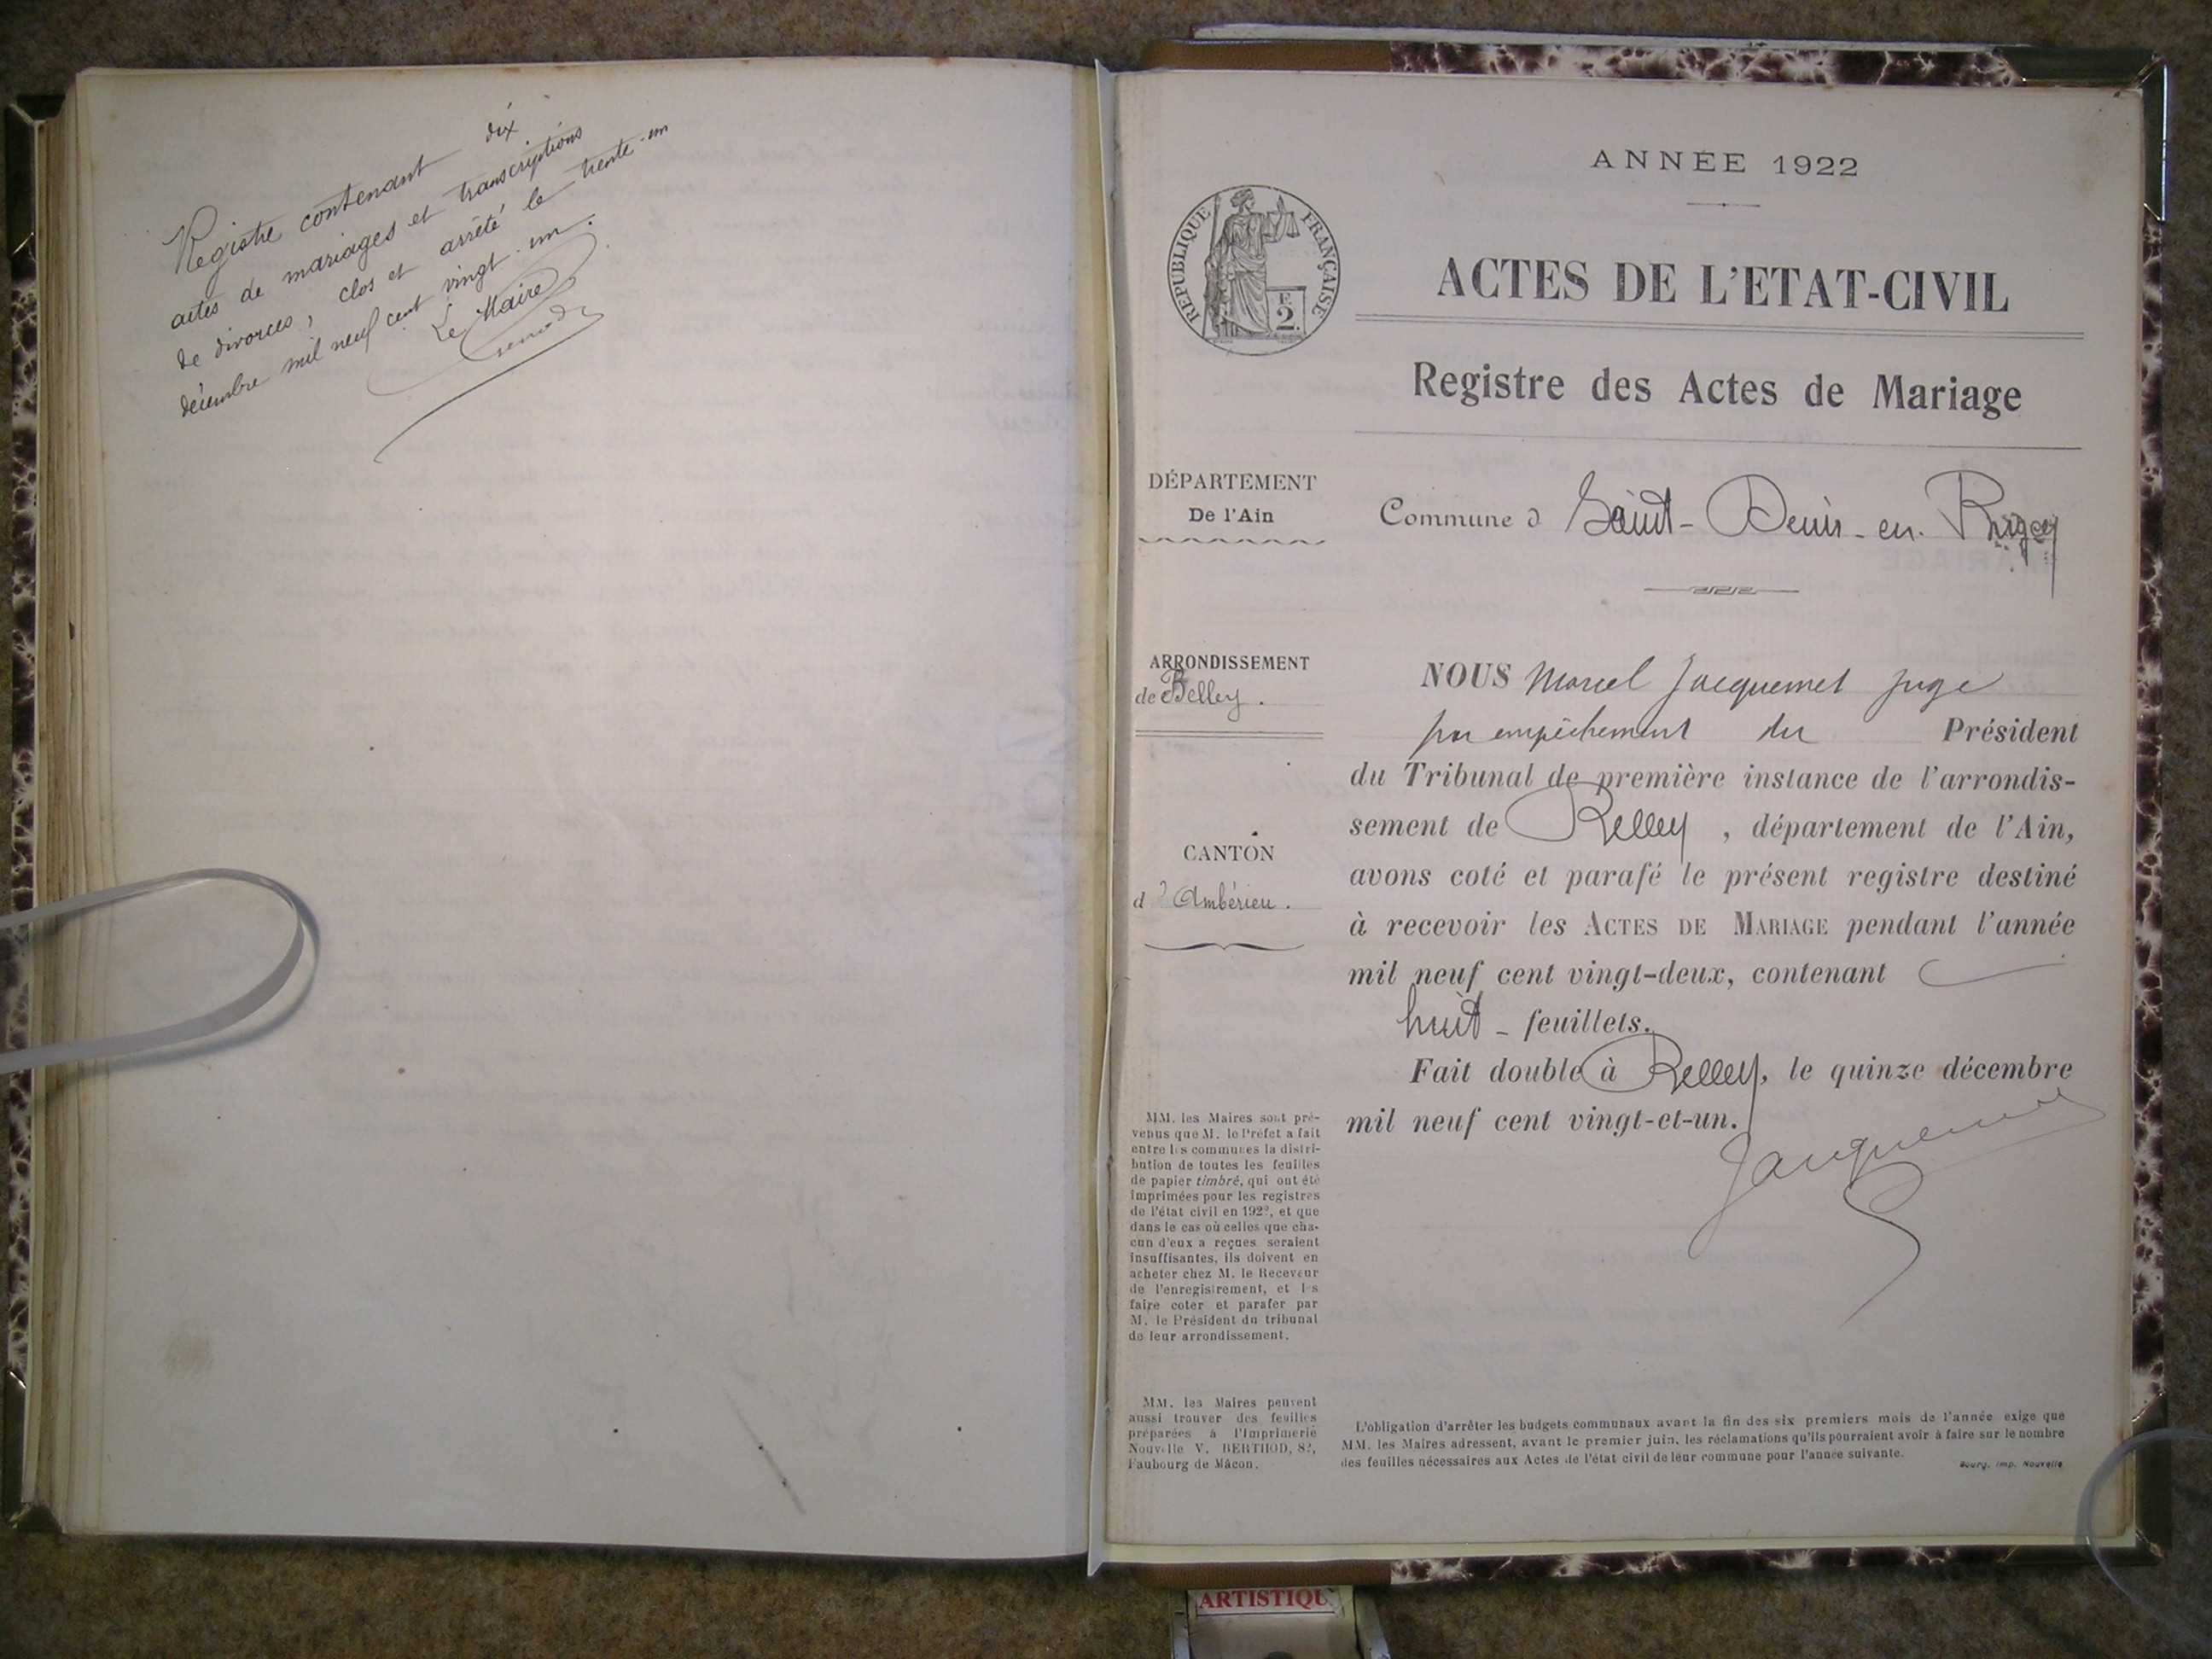 Registre contenant dix
actes de mariages et transcriptions
de divorces, clos et arrêté le trente-un
décembre mil neuf cent vingt-un.
Le Maire
ANNÉE 1922
RÉPUBLIQUE FRANÇAISE
F.
2.
ACTES DE L'ETAT-CIVIL
Registre des Actes de Mariage
DÉPARTEMENT
De l'Ain
Commune d Saint-Denis-en-Bugey
ARRONDISSEMENT
de Belley.
CANTON
d'Ambérieu.
MM. les Maires sont pré-
venus que M. le Préfet a fait
entre les communes la distri-
bution de toutes les feuilles
de papier timbré, qui ont été
imprimées pour les registres
de l'état civil en 1922, et que
dans le cas où celles que cha-
cun d'eux a reçues seraient
insuffisantes, ils doivent en
acheter chez M. le Receveur
de l'enregistrement, et les
faire coter et parafer par
M. le Président du tribunal
de leur arrondissement.
MM. les Maires peuvent
aussi trouver des feuilles
préparées à l'Imprimerie
Nouvelle V. BERTHOD, 82,
Faubourg de Mâcon.
NOUS Marcel Jacquemet juge
par empêchement du Président
du Tribunal de première instance de l'arrondis-
sement de Belley, département de l'Ain,
avons coté et parafé le présent registre destiné
à recevoir les ACTES DE MARIAGE pendant l'année
mil neuf cent vingt-deux, contenant
huit - feuillets.
Fait double à Belley, le quinze décembre
mil neuf cent vingt-et-un.
Jacquemet
L'obligation d'arrêter les budgets communaux avant la fin des six premiers mois de l'année exige que
MM. les Maires adressent, avant le premier juin, les réclamations qu'ils pourraient avoir à faire sur le nombre
des feuilles nécessaires aux Actes de l'état civil de leur commune pour l'année suivante.
Bourg, Imp. Nouvelle
ARTISTIQU